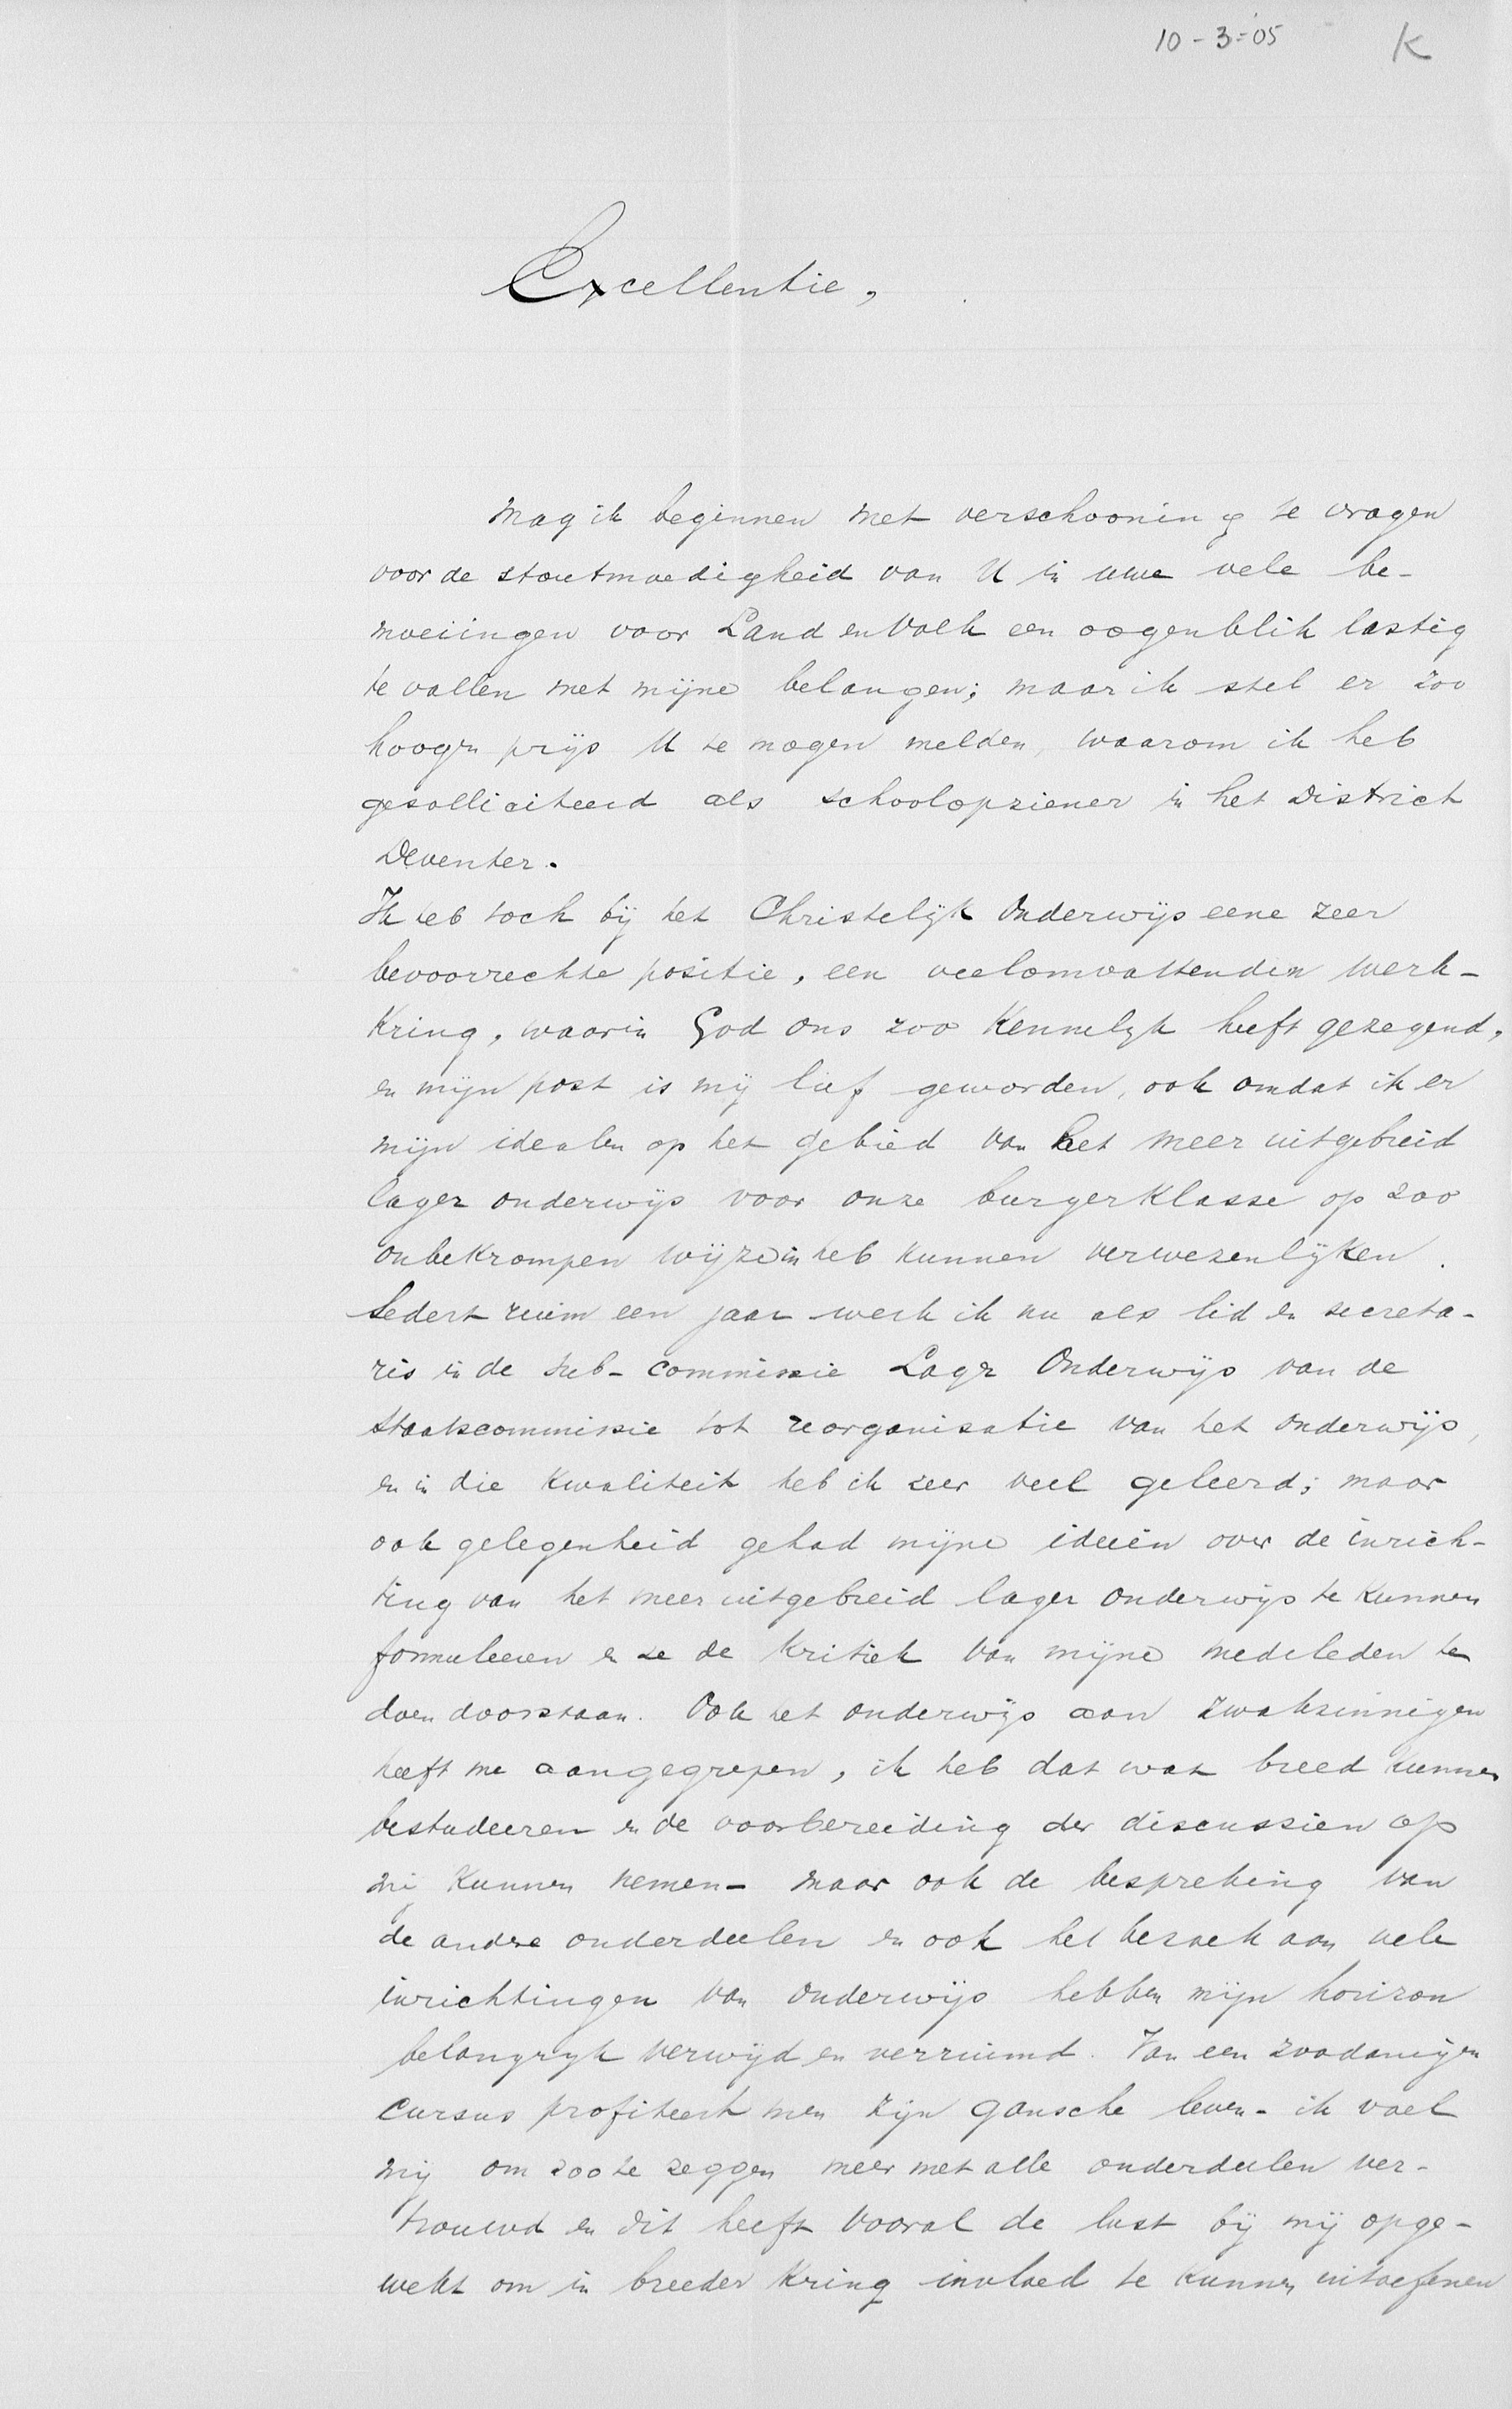 10-3-'05 K
Excellentie,
Mag ik beginnen met verschooning te vragen
voor de stoutmoedigheid van U in uwe vele be-
moeiingen voor Land en Volk een oogenblik lastig
te vallen met mijne belangen; maar ik stel er zoo
hoogen prijs U te mogen melden, waarom ik heb
gesolliciteerd als schoolopziener in het District
Deventer.
Ik heb toch bij het Christelijk Onderwijs eene zeer
bevoorrechte positie, een veelomvattenden werk-
kring, waarin God ons zoo kennelijk heeft gezegend,
en mijn post is mij lief geworden, ook omdat ik er
mijn idealen op het gebied van het meer uitgebreid
lager onderwijs voor onze burgerklasse op zoo
onbekrompen wijze in heb kunnen verwezenlijken.
Sedert ruim een jaar werk ik nu als lid en secreta-
ris in de sub-commissie Lager Onderwijs van de
Staatscommissie tot reorganisatie van het onderwijs,
en in die kwaliteit heb ik zeer veel geleerd; maar
ook gelegenheid gehad mijne ideeën over de inrich-
ting van het meer uitgebreid lager onderwijs te kunnen
formuleeren en ze de kritiek van mijne medeleden te
doen doorstaan. Ook het onderwijs aan zwakzinnigen
heeft me aangegrepen, ik heb dat wat breed kunnen
bestudeeren en de voorbereiding der discussien op
mij kunnen nemen - maar ook de bespreking van
de andere onderdeelen en ook het bezoek aan vele
inrichtingen van onderwijs hebben mijn horizon
belangrijk verwijd en verruimd. Van een zoodanigen
cursus profiteert men zijn gansche leven - ik voel
mij om zoo te zeggen meer met alle onderdeelen ver-
trouwd en dit heeft vooral de lust bij mij opge-
wekt om in breeder kring invloed te kunnen uitoefenen